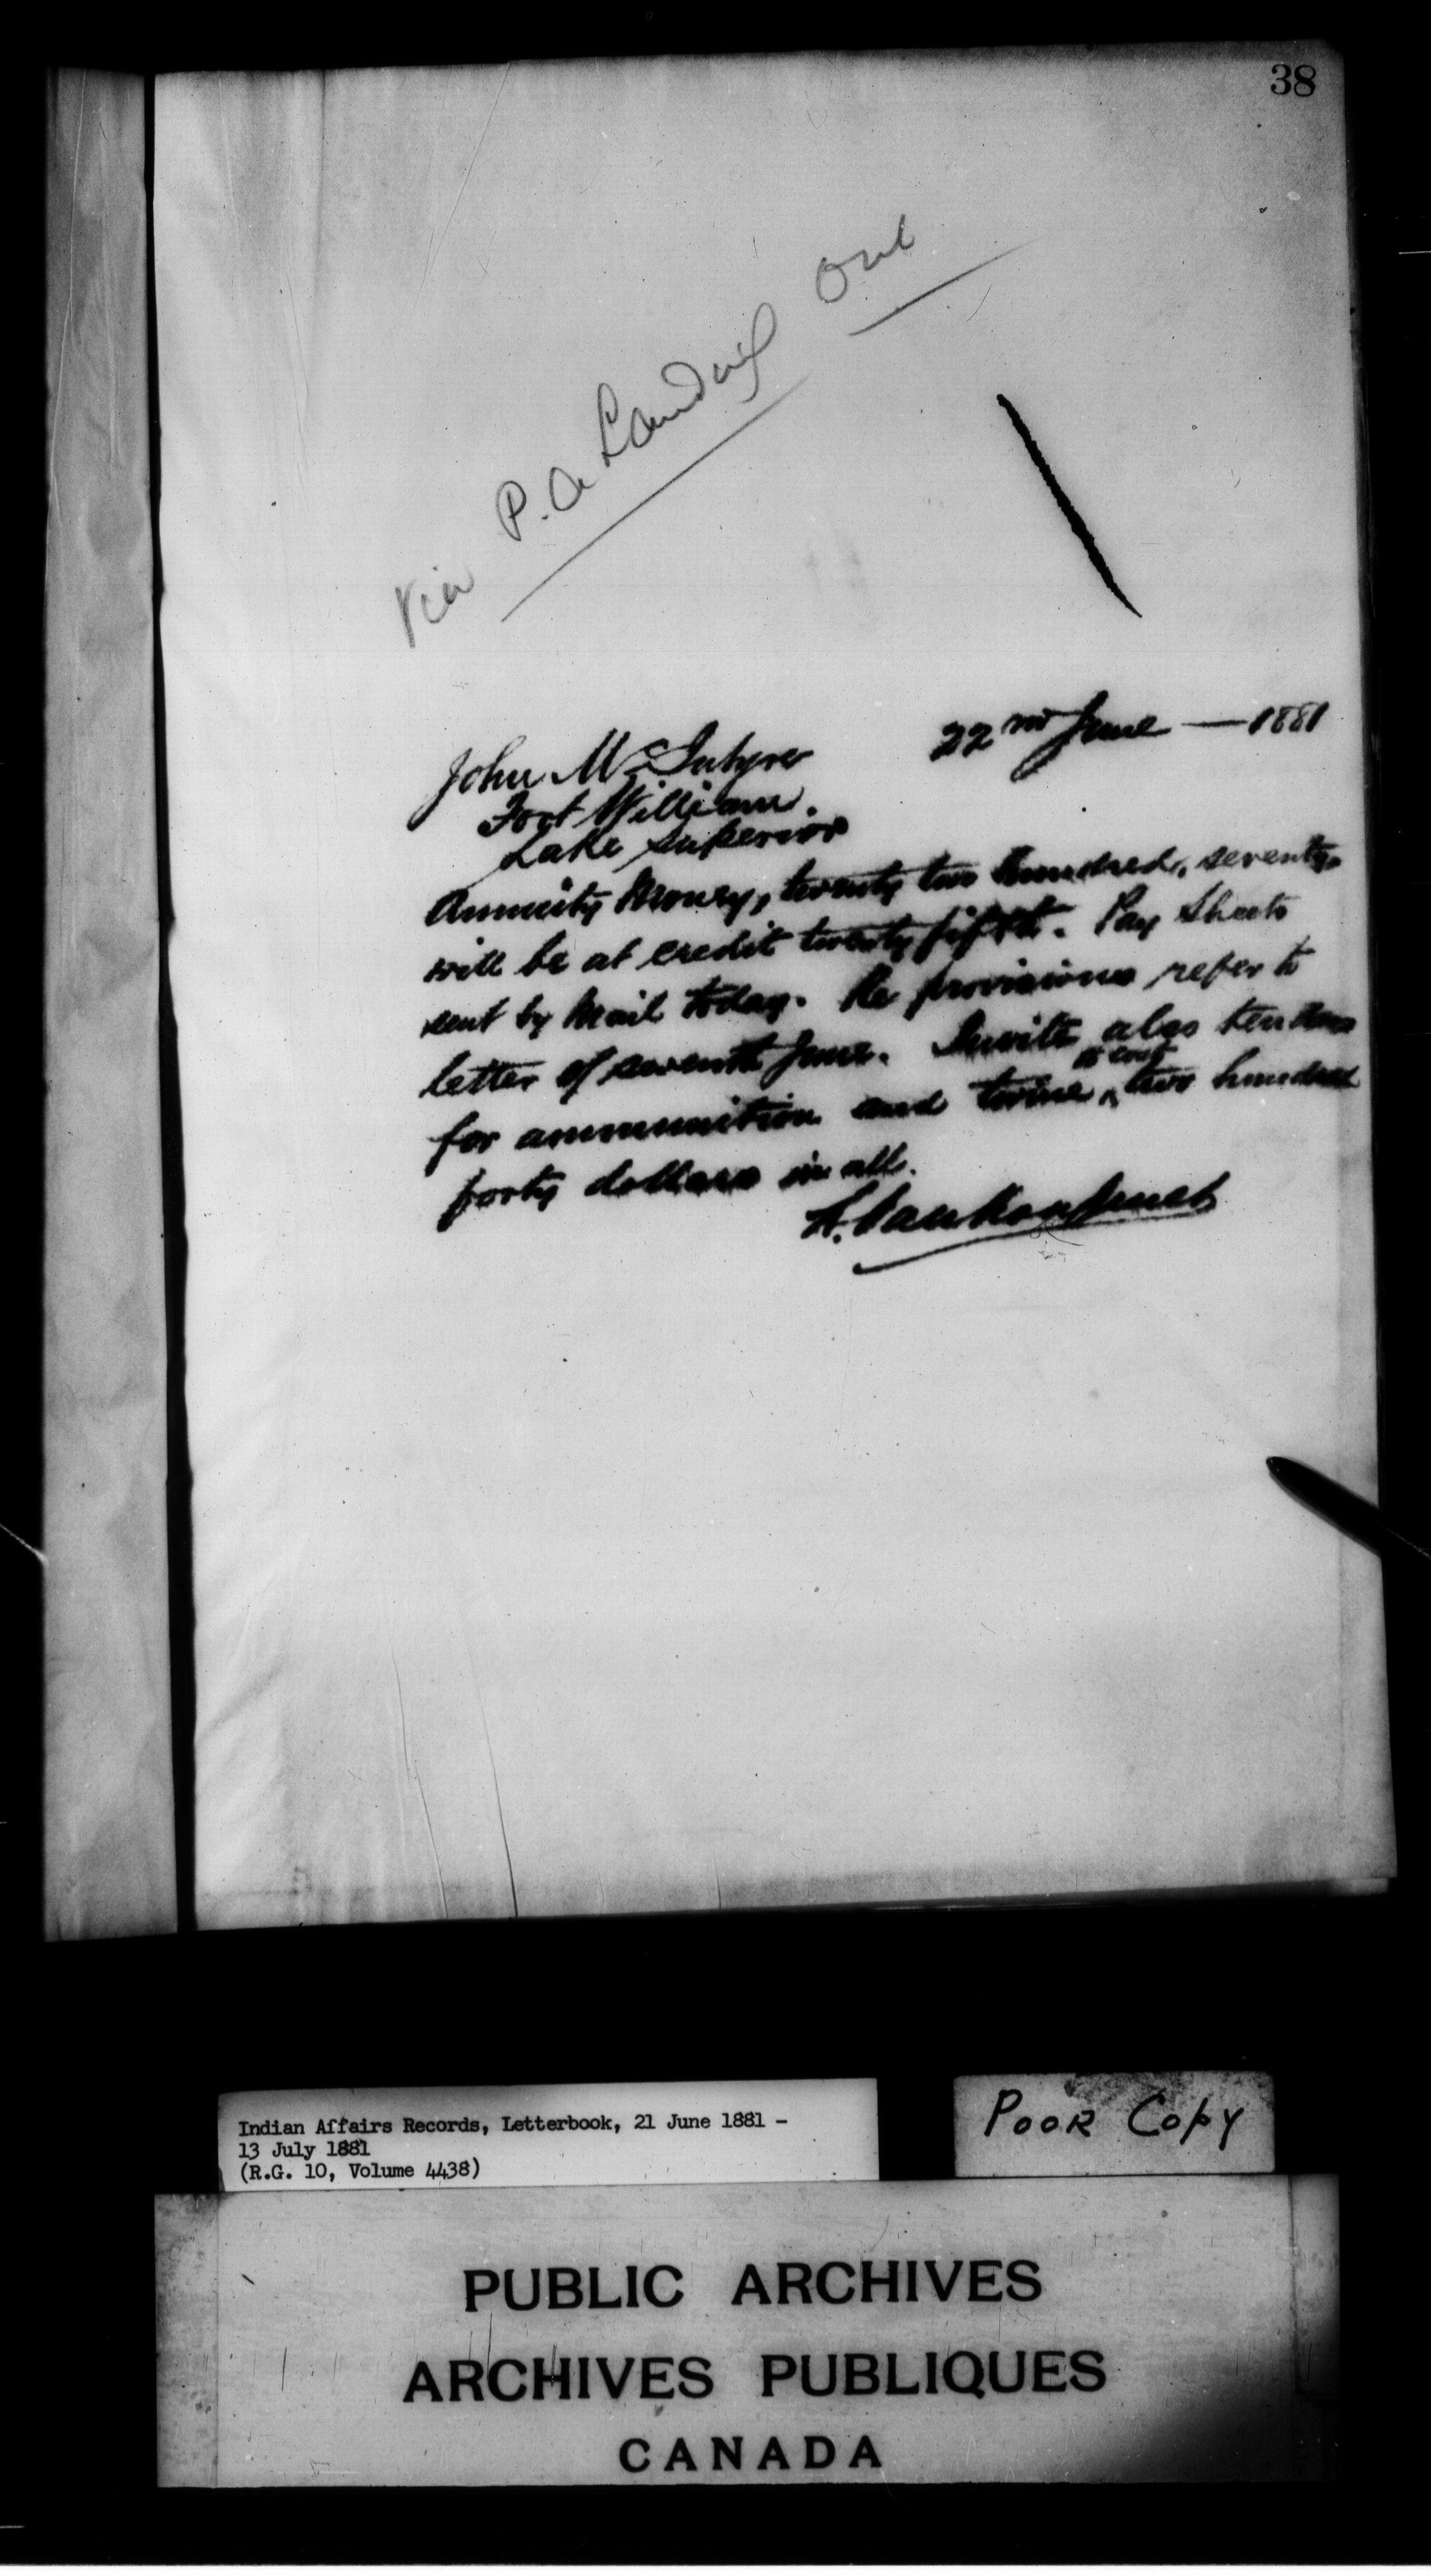 38
Via P.A Landing Ont
22nd June — 1881
John McIntyre
Fort William.
Lake Superior
Annuity Money, twenty two hundred, seventy,
will be at credit twenty fifth. Pay Sheets
sent by Mail today. Re provisions refer to
letter of seventh June. Invite also tenders
for ammunition and twine, to cost two hundred
forty dollars in all.
L. VanKoughnet
Indian Affairs Records, Letterbook, 21 June 1881 -
13 July 1881
(R.G. 10, Volume 4438)
POOR COPY
PUBLIC ARCHIVES
ARCHIVES PUBLIQUES
CANADA